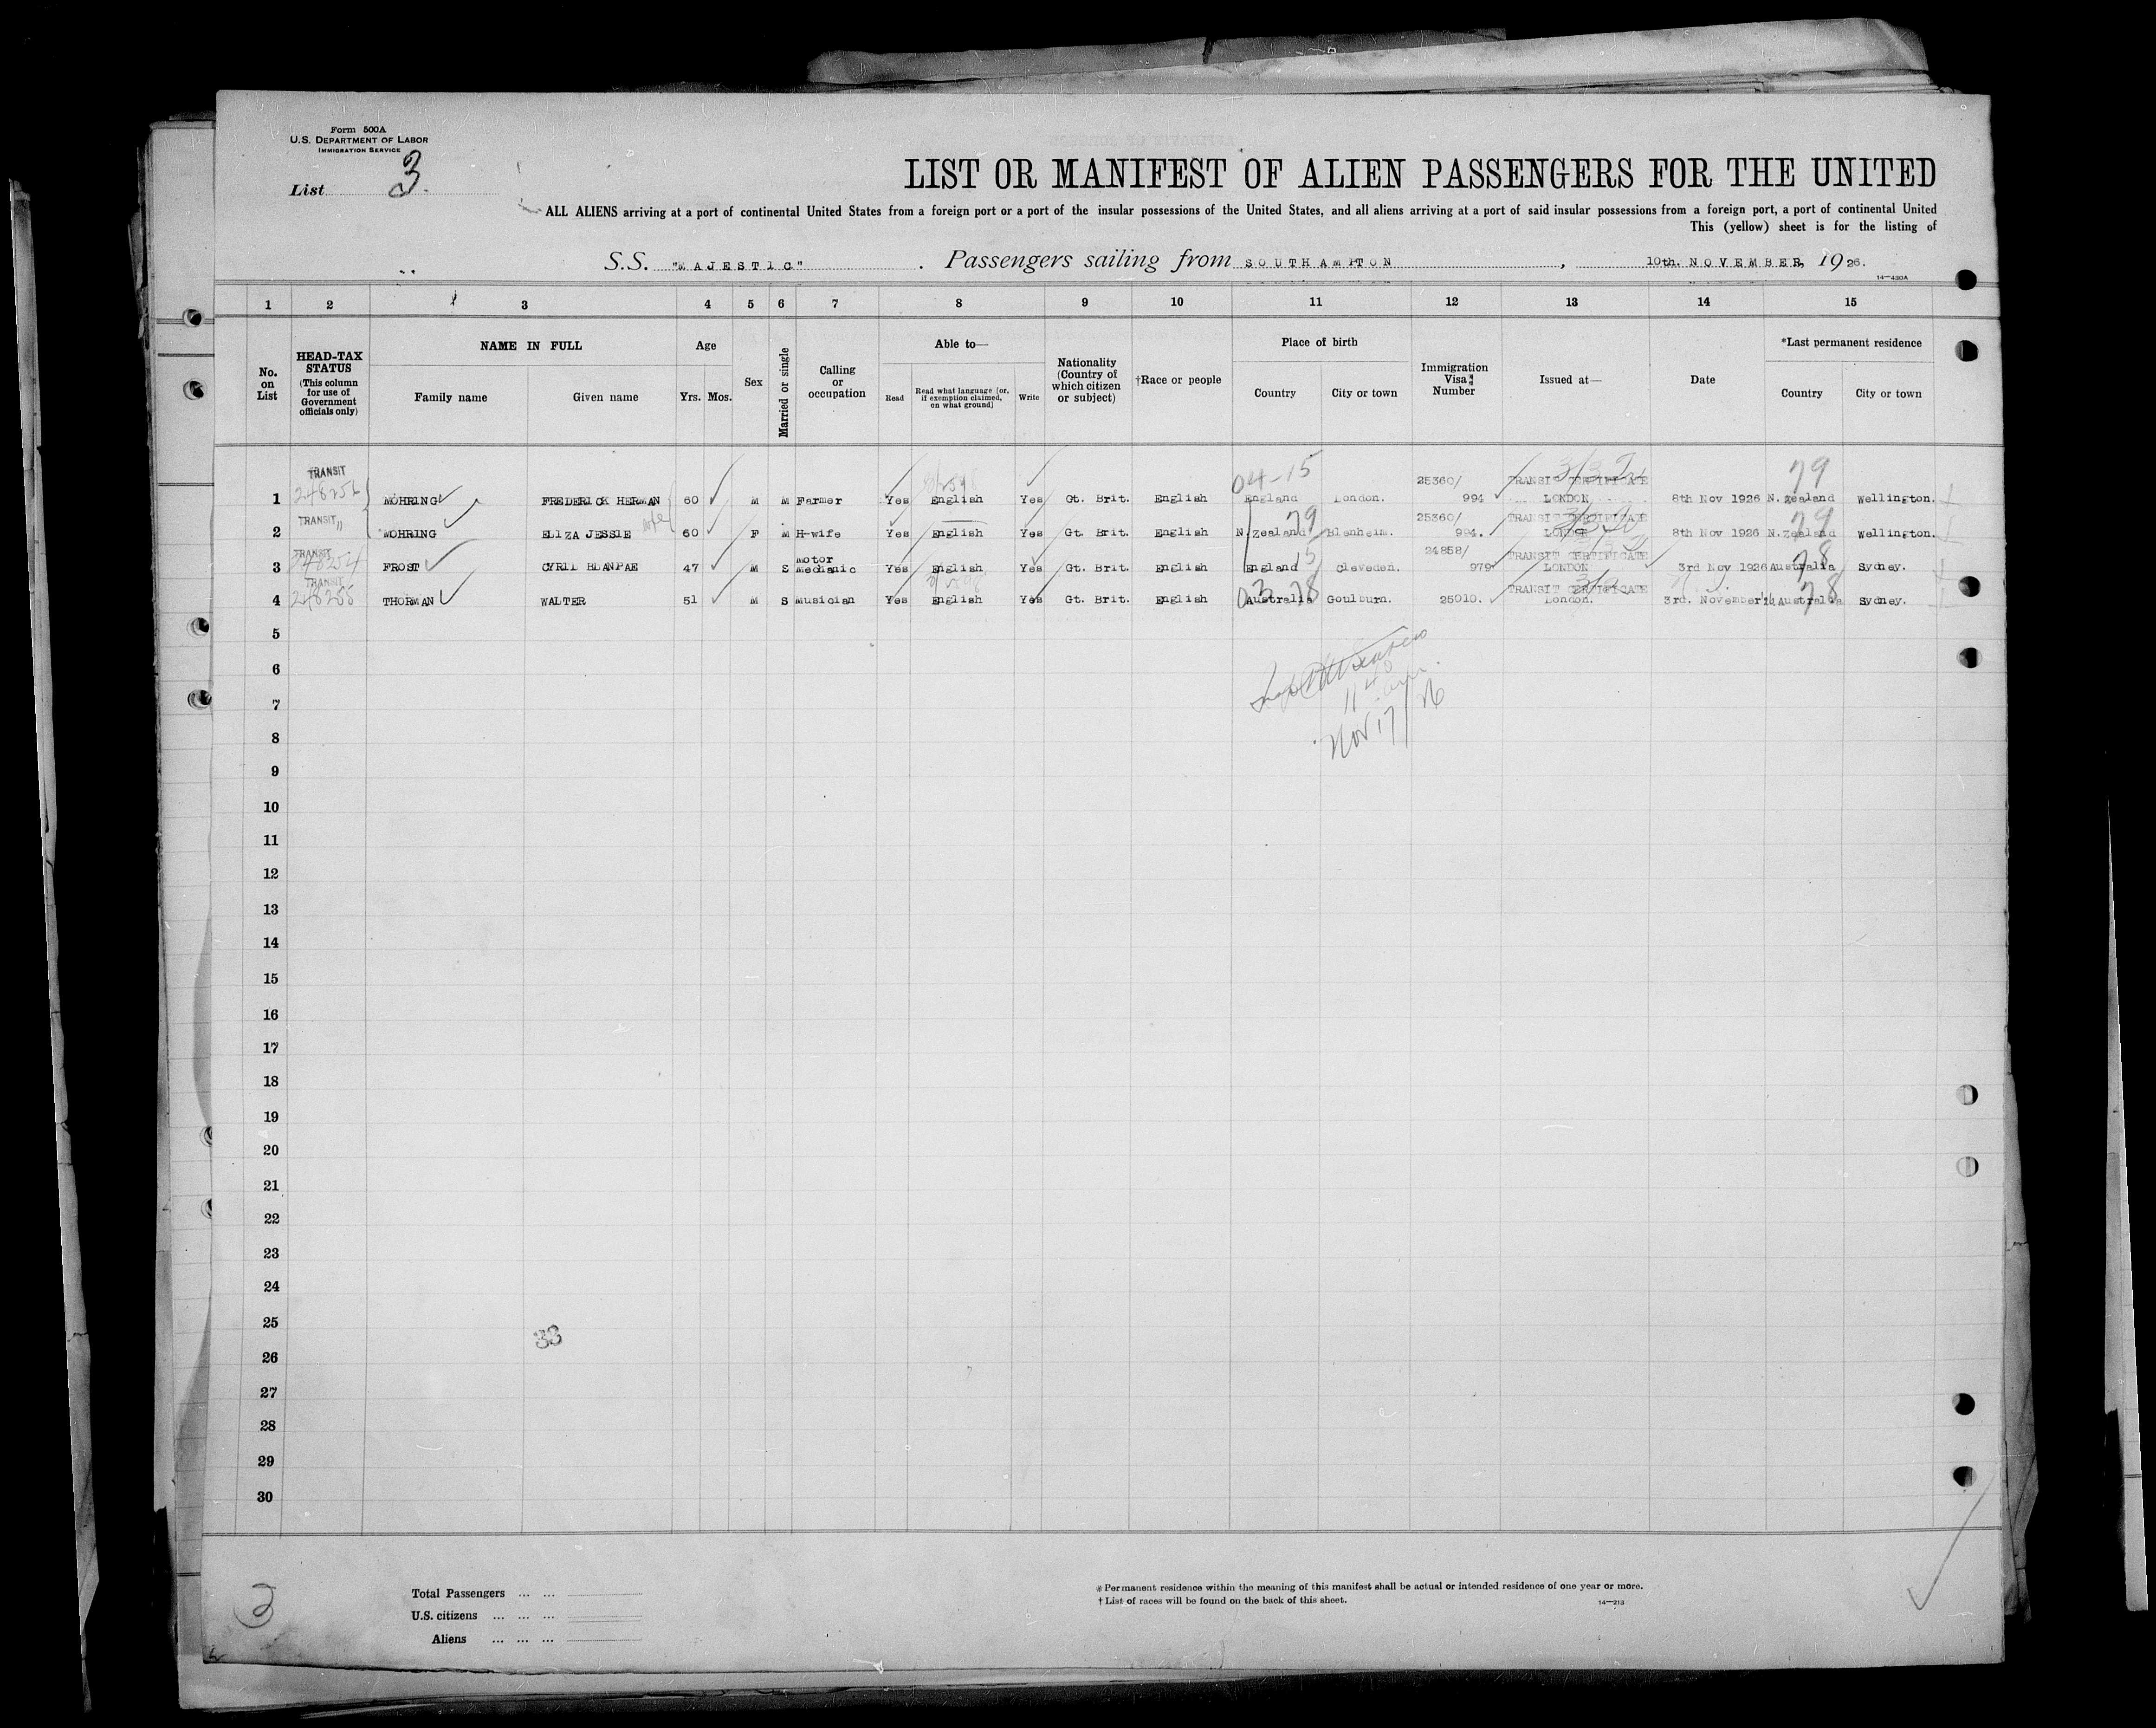 Form 500A
U.S. DEPARTMENT OF LABOR
IMMIGRATION SERVICE
List 3
LIST OR MANIFEST OF ALIEN PASSENGERS FOR THE UNITED
ALL ALIENS arriving at a port of continental United States from a foreign port or a port of the insular possessions of the United States, and all aliens arriving at a port of said insular possessions from a foreign port, a port of continental United
This (yellow) sheet is for the listing of
S.S. "MAJESTIC". Passengers sailing from SOUTHAMPTON, 10th. NOVEMBER, 1926.
14—430A
1 2 3 4 5 6 7 8 9 10 11 12 13 14 15
No. on List
HEAD-TAX STATUS (This column for use of Government officials only)
NAME IN FULL
Family name Given name
Age
Yrs. Mos.
Sex
Married or single
Calling or occupation
Able to—
Read Read what language [or, if exemption claimed, on what ground] Write
Nationality (Country of which citizen or subject)
†Race or people
Place of birth
Country City or town
Immigration Visa Number
Issued at—
Date
*Last permanent residence
Country City or town
TRANSIT 04-15 25360/ TRANSIT CERTIFICATE 79
1 MOHRING FREDERICK HERMAN 60 M M Farmer Yes English Yes Gt. Brit. English England London. 994 LONDON 8th Nov 1926 N. Zealand Wellington.
TRANSIT 79 25360/ TRANSIT CERTIFICATE 79
2 MOHRING ELIZA JESSIE wife 60 F M H-wife Yes English Yes Gt. Brit. English N. Zealand Blenheim. 994. LONDON 8th Nov 1926 N. Zealand Wellington.
TRANSIT 248254 motor 15 24858/ TRANSIT CERTIFICATE 78
3 FROST CYRIL BLANPAE 47 M S Mechanic Yes English Yes Gt. Brit. English England Cleveden. 979 LONDON 3rd Nov 1926 Australia Sydney.
TRANSIT 03 78 TRANSIT CERTIFICATE 78
4 THORMAN WALTER 51 M S Musician Yes English Yes Gt. Brit. English Australia Goulburn. 25010. London. 3rd. November Australia Sydney.
5
6
7
Nov 17/26
8
9
10
11
12
13
14
15
16
17
18
19
20
21
22
23
24
25
33
26
27
28
29
30
3
Total Passengers ... ...
U.S. citizens ... ... ...
Aliens ... ... ...
* Permanent residence within the meaning of this manifest shall be actual or intended residence of one year or more.
† List of races will be found on the back of this sheet.
14—213